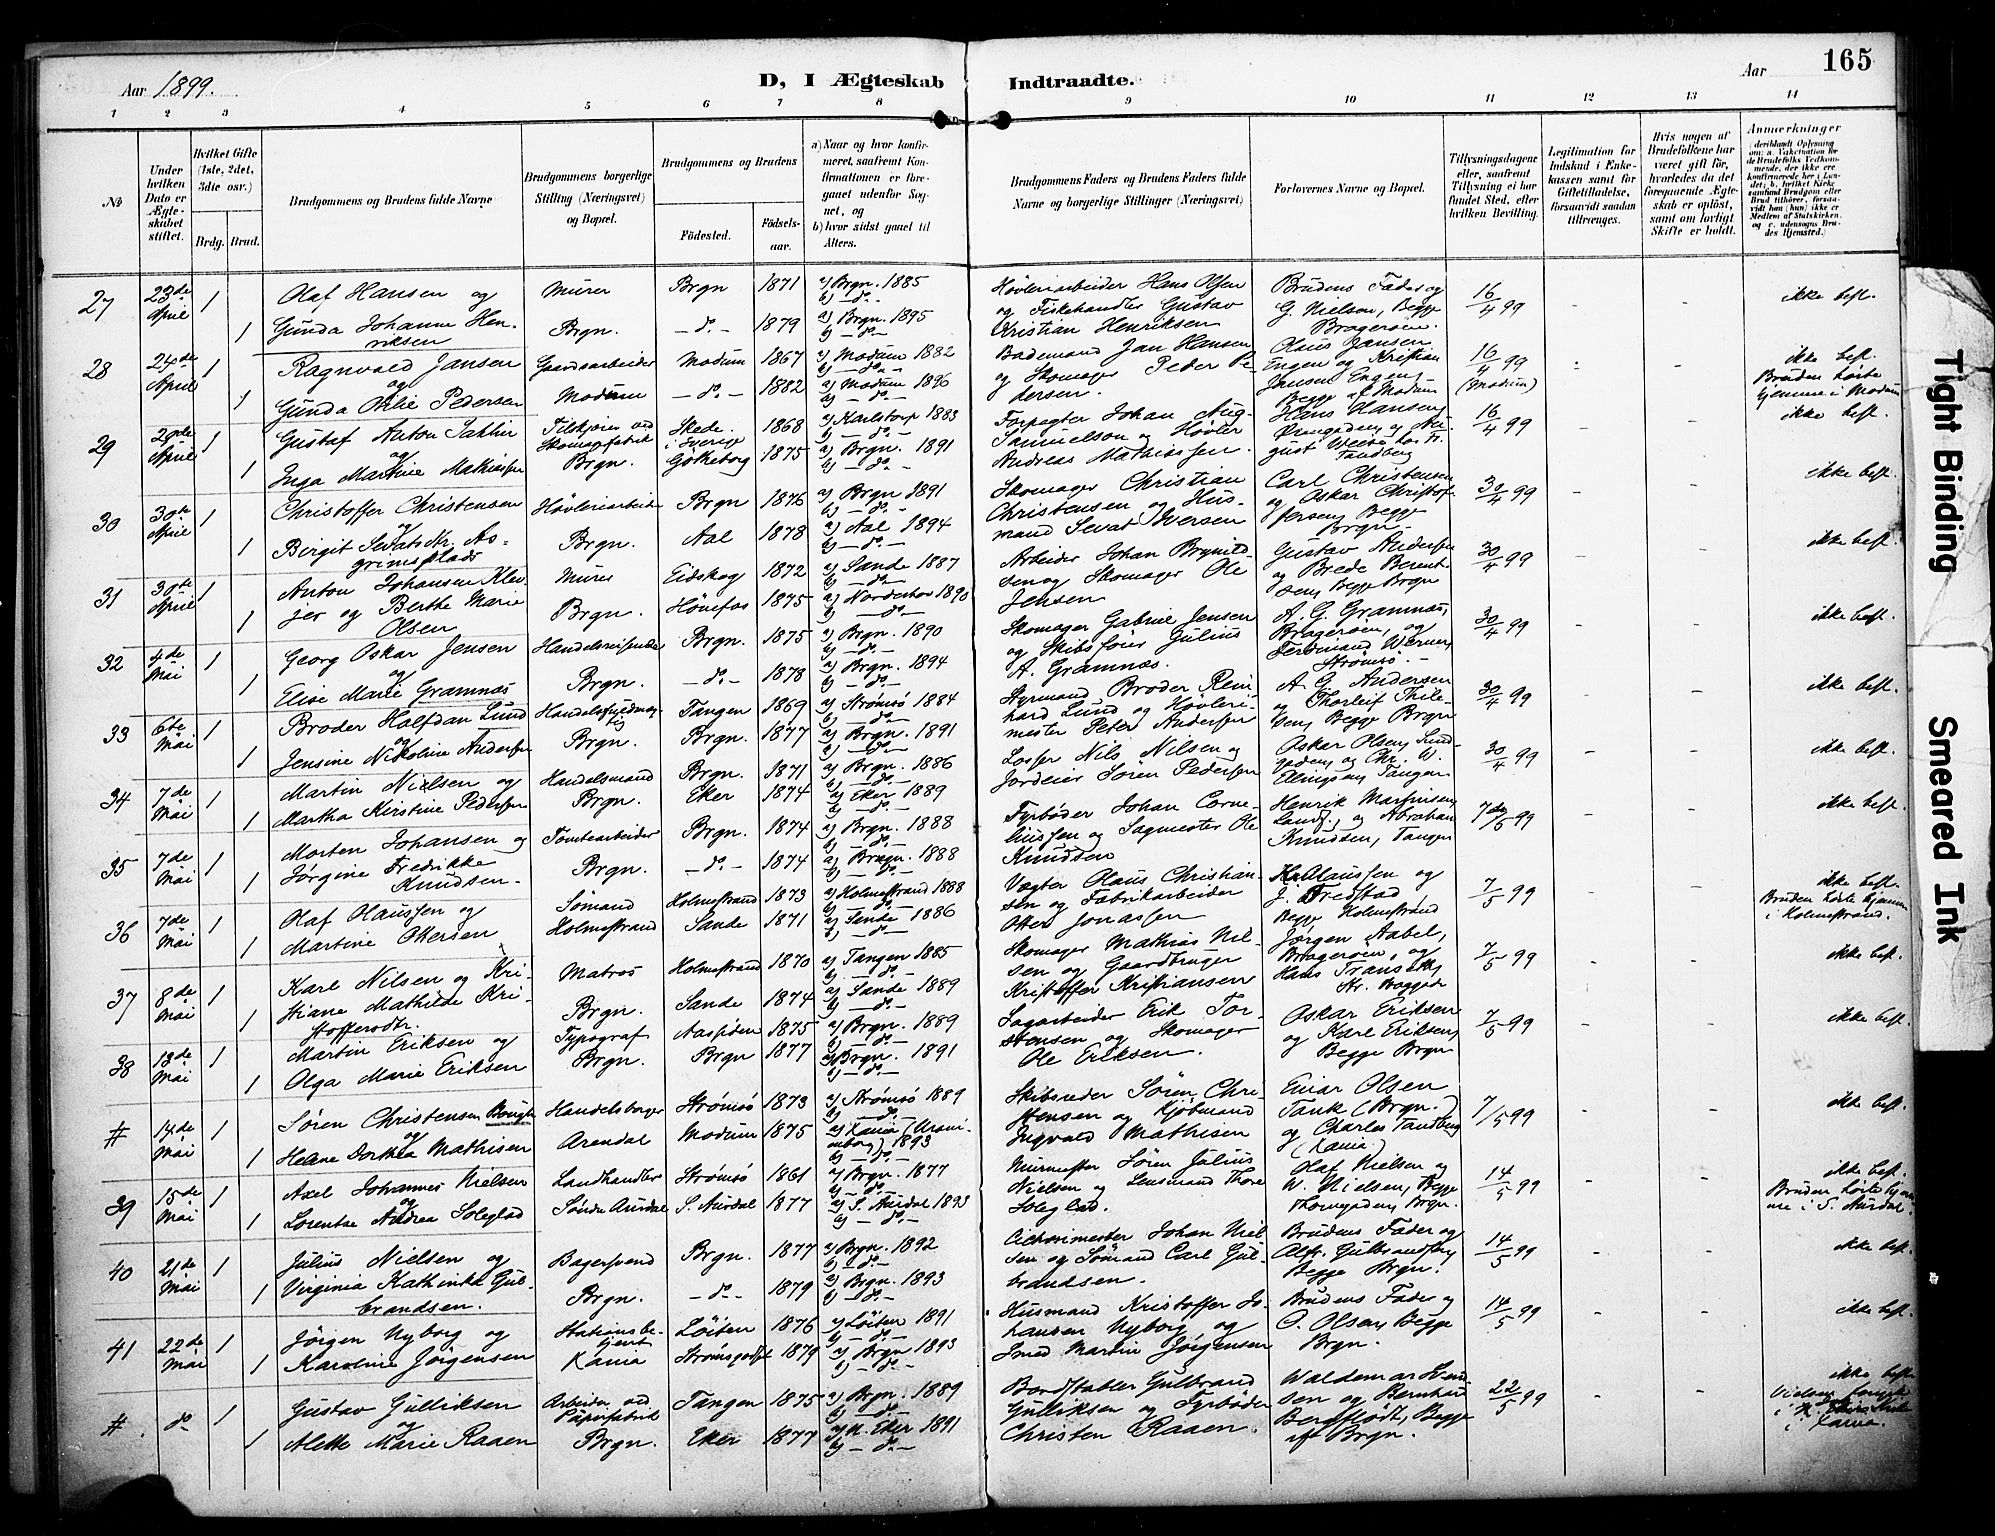 Aar 1899.
D, I Ægteskab Indtraadte.
Aar
165
1 2 3 4 5 6 7 8 9 10 11 12 13 14
No
Under hvilken Dato er Ægteskabet stiftet.
Hvilket Gifte (1ste, 2det, 3die osv.)
Brdg. Brud.
Brudgommens og Brudens fulde Navne
Brudgommens borgerlige Stilling (Næringsvei) og Bopæl.
Brudgommens og Brudens
Fødested.
Fødselsaar.
a) Naar og hvor konfirmeret, saafremt Konfirmationen er foregaaet udenfor Sognet, og
b) hvor sidst gaaet til Alters.
Brudgommens Faders og Brudens Faders fulde Navne og borgerlige Stillinger (Næringsvei)
Forlovernes Navne og Bopæl.
Tillysningsdagene eller, saafremt Tillysning ei har fundet Sted, efter hvilken Bevilling.
Legitimation for Indskud i Enkekassen samt for Giftetilladelse, forsaavidt saadan tiltrænges.
Hvis nogen af Brudefolkene har været gift før, hvorledes da det foregaaende Ægteskab er opløst, samt om lovligt Skifte er holdt.
Anmærkninger
27 23de April 1 Olaf Hansen og Murer Brgn 1871 a) Brgn. 1885 Høvleriarbeider Hans Olsen Brudens Fader og 16/4 99 ikke besl.
1 Gunda Johanne Henriksen Brgn. - do - 1879 a) Brgn. 1895 og Fiskehandler Gustav Kristian Henriksen G. Nielsen, Begge Bragerøen.
28 24de April 1 Ragnvald Jansen og Gaardsarbeider Modum 1867 a) Modum 1882 Bademand Jan Hansen Olaus Jansen Engen og Kristian 16/4 99 (Modum) ikke besl.
1 Gunda Otilie Pedersen Modum - do - 1882 a) Modum 1896 og Skomager Peder Pedersen Jansen Engen, Begge af Modum Bruden hørte hjemme i Modum
29 1 Gustaf Anton Sahlin og Skede i Sverige 1868 a) Karlstorp 1883 Forpagter Johan Aug. Samuelson og Høvler Hans Hansen 16/4 99 ikke besl.
April 1 Inga Martine Mathiassen Brgn. Göteborg 1875 a) Brgn. 1891 Andreas Mathiassen. Tandberg
30 30te April 1 Christoffer Christensen og Høvleriarbeider Brgn 1876 a) Brgn 1891 Skomager Christian Christensen og Hus- Carl Christensen og Oskar Christof- 30/4 99 ikke besl.
1 Birgit Sevatsdtr. Asgrimsplads Brgn. Aal 1878 a) Aal 1894 mand Sevat Iversen fersen, Begge Brgn.
31 30te April 1 Anton Johansen Klev- Murer Eidskog 1872 a) Sande 1887 Arbeider Johan Brynild- Gustav Andersen 30/4 99 ikke besl.
1 jer og Berthe Marie Olsen Brgn. Hønefos 1875 a) Norderhov 1890 sen og Skomager Ole Jensen og Brede Berentsen, Begge Brgn
32 4de Mai 1 Georg Oskar Jensen og Handelsreisende Brgn. 1875 a) Brgn. 1890 Skomager Gabriel Jensen A. G. Gramnæs, Bragerøen, og 30/4 99 ikke besl.
1 Elise Marie Gramnæs Brgn. - do - 1878 a) Brgn. 1894 og Skibsfører Julius A. Gramnæs. Ferdinand Werner, Strømsø.
33 6te Mai 1 Broder Halfdan Lund og Tangen 1869 a) Strømsø 1884 Styrmand Broder Reinhard Lund og Høvleri- A. G. Andersen og Thorleif Thile- 30/4 99 ikke besl.
1 Jensine Nikoline Andersen Brgn. Brgn. 1877 a) Brgn. 1891 mester Peter Andersen sen, Begge Brgn
34 7de Mai 1 Martin Nielsen og Handelsmand Brgn. 1871 a) Brgn. 1886 Losser Nils Nilsen og Oskar Olsen, 30/4 99 ikke besl.
1 Martha Kirstine Pedersen Brgn. Eker 1874 a) Eker 1889 Jordeier Søren Pedersen Ellingsen, Tangen
35 7de Mai 1 Morten Johansen og Tomtearbeider Brgn. 1874 a) Brgn. 1888 Fyrbøder Johan Corneliussen og Sagmester Ole Henrik og Abraham 7de/5 99 ikke besl.
1 Jørgine Fredrikke Knudsen. Brgn. - do - 1874 a) Bragn. 1888 Knudsen Knudsen, Tangen
36 7de Mai 1 Olaf Olaussen og Sømand Holmestrand 1873 a) Holmestrand 1888 Vægter Olaus Christian- Kr. Olaussen og 7/5 99 ikke besl.
1 Martine Ottersen Holmestrand Sande 1871 a) Sande 1886 sen og Fabrikarbeider Otter Jonassen J. Fredstad Begge Holmestrand Bruden hørte hjemme i Holmestrand.
37 8de Mai 1 Karl Nilsen og Kri- Matros Holmestrand 1870 a) Tangen 1885 Skomager Mathias Nilsen og Gaardbruger Jørgen Aabel, Bragerøen, og 7/5 99 ikke besl.
1 stiane Mathilde Kristoffersdtr. Brgn. Sande 1874 a) Sande 1889 Kristoffer Kristiansen Hans
38 13de Mai 1 Martin Eriksen og Typograf 1875 a) Brgn. 1889 Sagarbeider Erik Torstensen og Skomager Oskar Eriksen og Karl Eriksen, 7/5 99 ikke besl.
1 Olga Marie Eriksen Brgn. Brgn 1877 a) Brgn. 1891 Ole Eriksen. Begge Brgn
# 14de Mai 1 Søren Christensen og Handelsborger Strømsø 1873 a) Strømsø 1889 Skibsreder Søren Christensen og Kjøbmand Einar Olsen Tank (Brgn.) 7/5 99 ikke besl.
1 Helene Dorthea Mathisen Arendal Modum 1875 a) Xania 1893 Ingvald Mathisen og Charles Tandberg (Xania)
39 15de Mai 1 Axel Johannes Nielsen og Landhandler Strømsø 1861 a) Brgn. 1877 Murmester Søren Julius Nielsen og Lensmand Thore Olaf Nielsen og W. Nielsen, Begge 14/5 99 ikke besl.
1 Lorentse Andrea Soleglad Søndre Aurdal S. Aurdal 1877 a) S. Aurdal 1893 Soleglad. Brgn. Bruden hørte hjemme i S. Aurdal.
40 21de Mai 1 Julius Nielsen og Bagersvend Brgn. 1877 a) Brgn. 1892 Cichorimester Johan Nielsen og Sømand Carl Gul- Brudens Fader og 14/5 99 ikke besl.
1 Virginia Kathinka Gulbrandsen. Brgn. - do - 1879 a) Brgn. 1893 brandsen. Alfr. Gulbrandsen, Begge Brgn.
41 22de Mai 1 Jørgen Nyborg og Stationsbetjent Løiten 1876 a) Løiten 1891 Husmand Kristoffer Johansen Nyborg og Brudens Fader og 14/5 99 ikke besl.
1 Karoline Jørgensen Xania 1879 a) Brgn 1893 Smed Martin Jørgensen O. Olsen, Begge Brgn.
# do 1 Gustav Gulliksen og Arbeider ved Papirfabrik Tangen 1875 a) Brgn. 1889 Bordstabler Gulbrand Gulliksen og Fyrbøder Waldemar sen og Bernhard 22/5 99 ikke besl.
1 Alette Marie Raaen Brgn. Eker 1877 a) N. Eker 1891 Christen Raaen. Bergflødt, Begge af Brgn.
Tight Binding
Smeared Ink